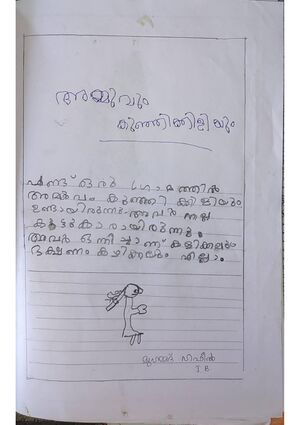 അമ്മുവും
കുഞ്ഞിക്കിളിയും
പണ്ട് ഒരു ഗ്രാമത്തിൽ
അമ്മുവും കുഞ്ഞി കിളിയും
ഉണ്ടായിരുന്നു അവർ നല്ല
കൂട്ടുകാരായിരുന്നു
അവർ ഒന്നിച്ചാണ് കളിക്കലും
ഭക്ഷണം കഴിക്കലും എല്ലാം.
മുഹമ്മദ്
I B